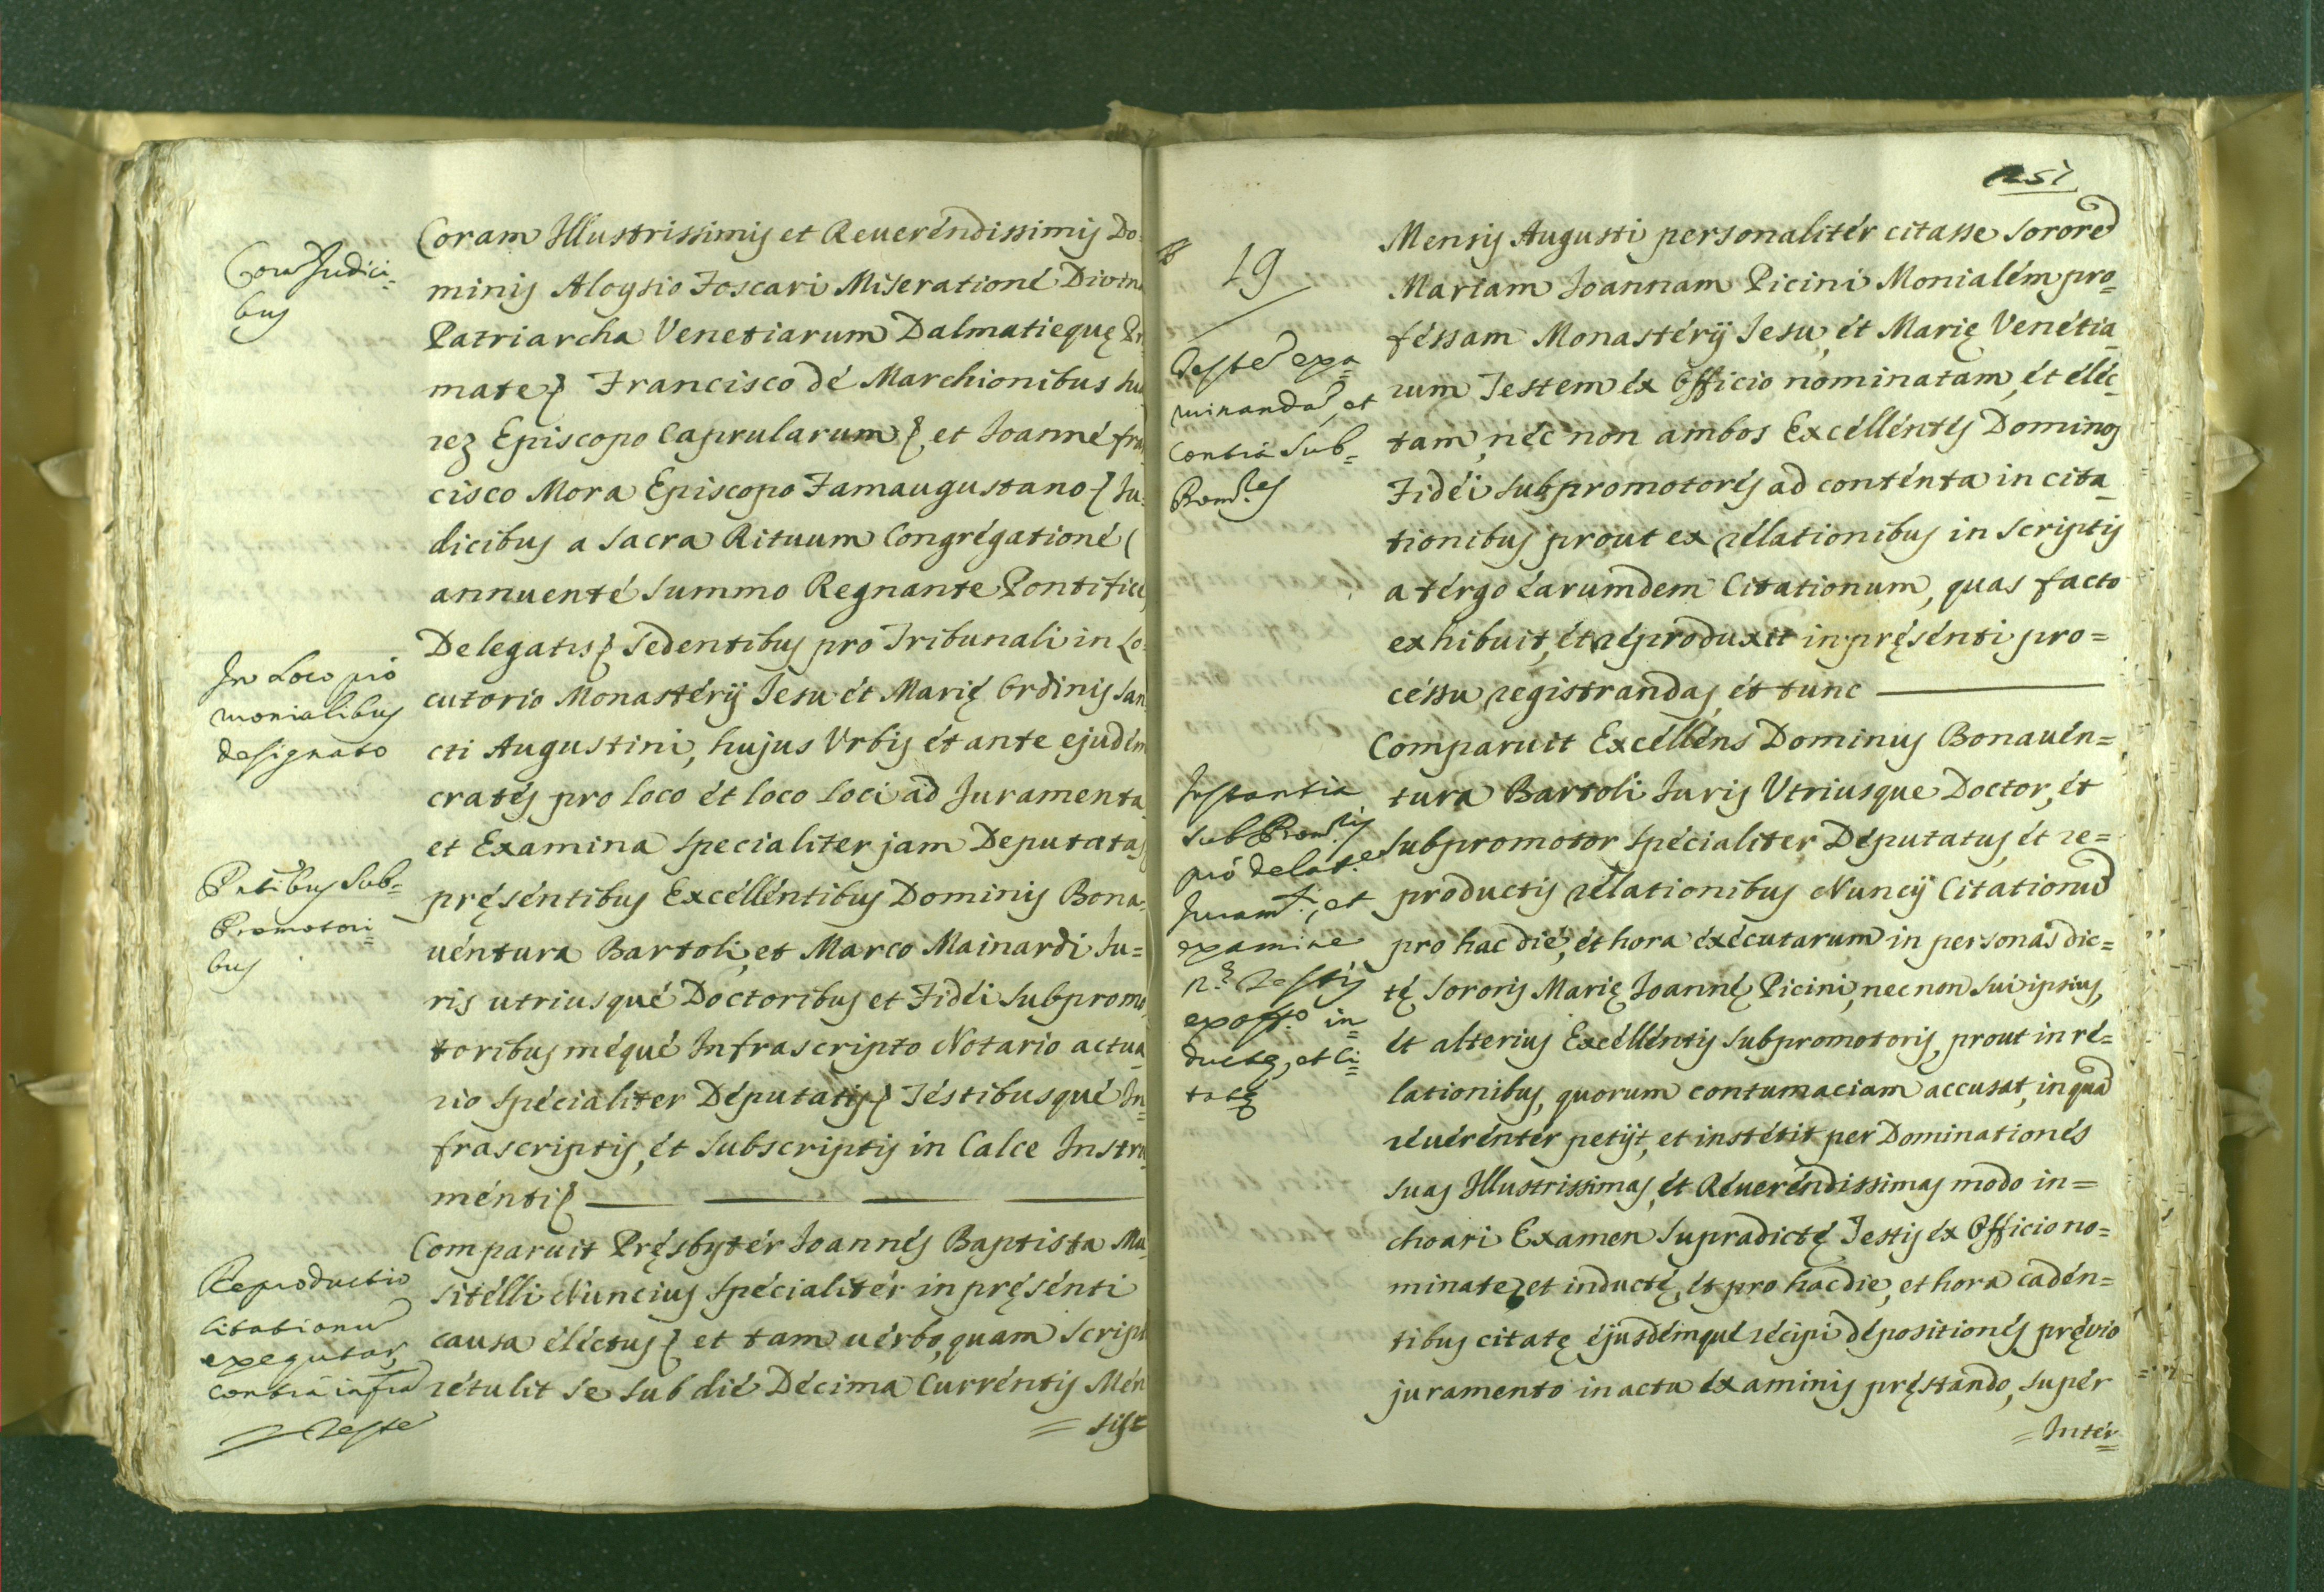 Coram Judici=
bus
In Loco pro
monialibus
designato
Pntibus Sub=
Promotori=
bus
Reproductio
Citationũ
exequutar,
contra infrã
Teste
Coram Illustrissimis et Reuerendissimis Do=
minis Aloysio Foscari Miseratione Divina
Patriarcha Venetiarum Dalmatiequę Pr
mate, Francisco de Marchionibus Sua
rez Episcopo Caprularum, et Joanne fran
cisco Mora Episcopo Famaugustano, Ju=
dicibus a Sacra Rituum Congregatione (
annuente Summo Regnante Pontifice,
Delegatis, Sedentibus pro Tribunali in Lo=
cutorio Monasterij Jesu et Marię Ordinis San
cti Augustini, hujus Vrbis et ante ejudem
crates pro loco et loco Loci ad Juramenta
et Examina Specialiter jam Deputata,
pręsentibus Excellentibus Dominis Bona=
uentura Bartoli, et Marco Mainardi Ju=
ris utriusque Doctoribus et Fidei Subpromo
toribus meque Infrascripto Notario actua
rio Specialiter Deputatis, Testibusque In=
frascriptis, et Subscriptis in Calce Instru
menti,
Comparuit Pręsbyter Joannes Baptista Mu
sitelli Nuncius Specialiter in pręsenti
causa electus, et tam uerbo, quam Script
retulit se sub die Decima Currentis Men
= sis
251
19
Testẽ exa=
minandã, et
contra Sub=
Promres
Instantia
SubPromris
pro delatne
Juramti, et
examine
Testis
ex offo in=
ductę, et Ci=
tatę
Mensis Augusti personaliter citasse Sororẽ
Mariam Joannam Picini Monialem pro=
fessam Monasterij Jesu, et Marię Venetia
rum Testem ex Officio nominatam, et elec=
tam, nec non ambos Excellentes Dominos
Fidei Subpromotores ad contenta in cita=
tionibus prout ex relationibus in Scriptis
a tergo earumdem Citationum, quas facto
exhibuit, et reproduxit in pręsenti pro=
cessu registrandas, et tunc
Comparuit Excellens Dominus Bonauen=
tura Bartoli Juris Vtriusque Doctor, et
Subpromotor Specialiter Deputatus, et re=
productis relationibus Nuncij Citationũ
pro hac die, et hora executarum in personas dic=
tę Sororis Marię Joannę Picini, nec non Sui ipsius,
et alterius Excellentis Subpromotoris, prout in re=
lationibus, quorum contumaciam accusat, in quã
reuerenter petijt, et instetit per Dominationes
Suas Illustrissimas, et Reuerendissimas modo in=
choari Examen Supradictę Testis ex Officio no=
minatę et inductę, et pro hac die, et hora caden=
tibus citatę, ejusdemque recipi depositiones, pręuio
juramento in actu examinis pręstando, super
= Inter=